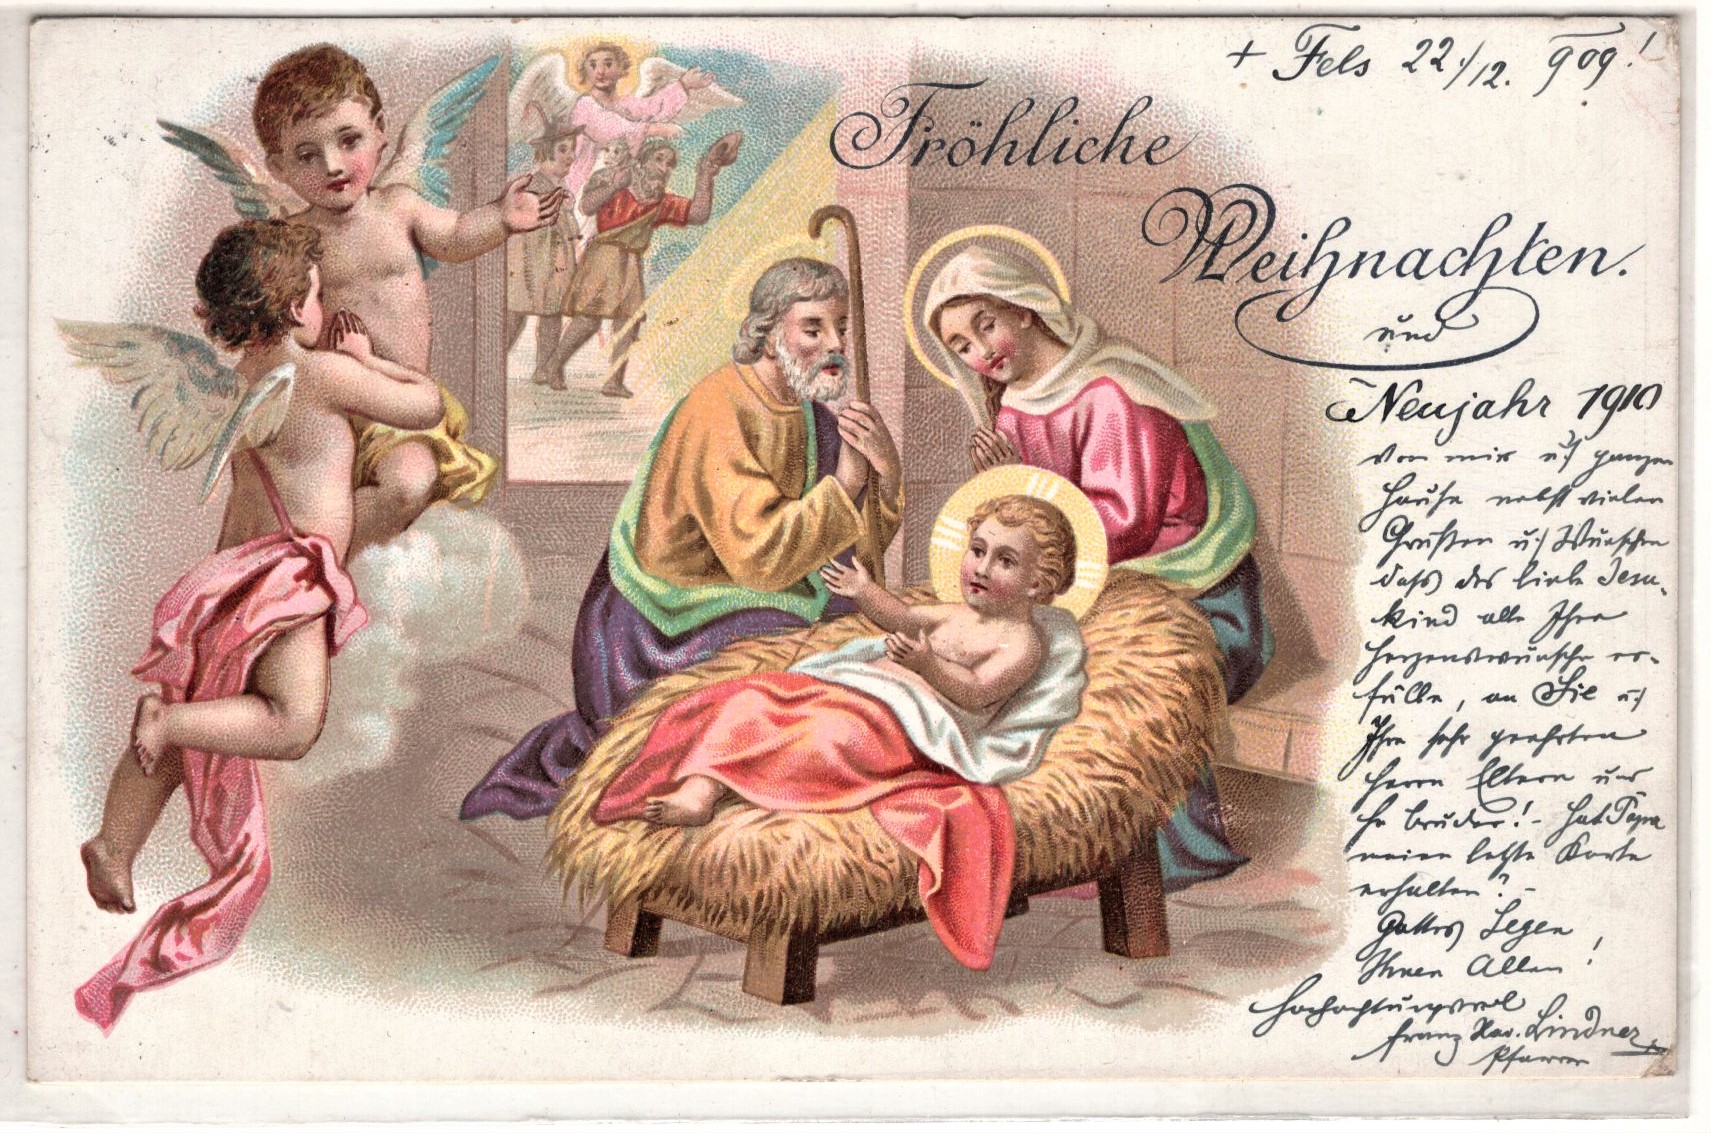 + Fels 22./12. 909!
Fröhliche
Weihnachten.
und
Neujahr 1910
von mir u. ganzen
Hause nebst vielen
Grüßen u. Wünschen
daß das liebe Jesu-
kind alle Ihre
Herzenswünsche er-
fülle, an Sie u.
Ihre sehr geehrten
Herrn Eltern und
H. Bruder! - Hat Papa
meine letzte Karte
erhalten? -
Gottes Segen
Ihnen Allen!
Hochachtungsvoll
Franz Xav. Lindner
Pfarrer